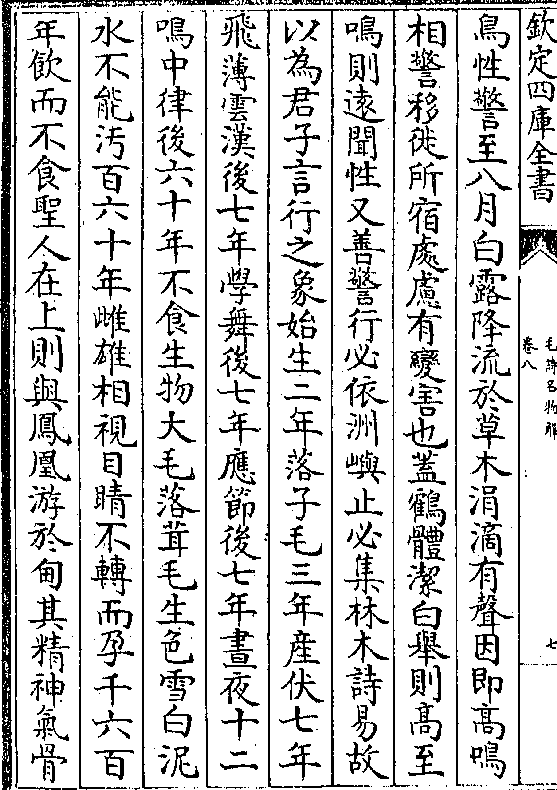 欽定四庫全書
毛詩名物解
卷八
七
鳥性警至八月白露降流於草木涓滴有聲因即高鳴
相警移徙所宿處慮有變害也蓋鶴體潔白舉則高至
鳴則遠聞性又善警行必依洲嶼止必集林木詩易故
以為君子言行之象始生二年落子毛三年産伏七年
飛薄雲漢後七年學舞後七年應節後七年晝夜十二
鳴中律後六十年不食生物大毛落茸毛生色雪白泥
水不能汚百六十年雌雄相視目睛不轉而孕千六百
年飲而不食聖人在上則與鳳凰游於甸其精神氣骨